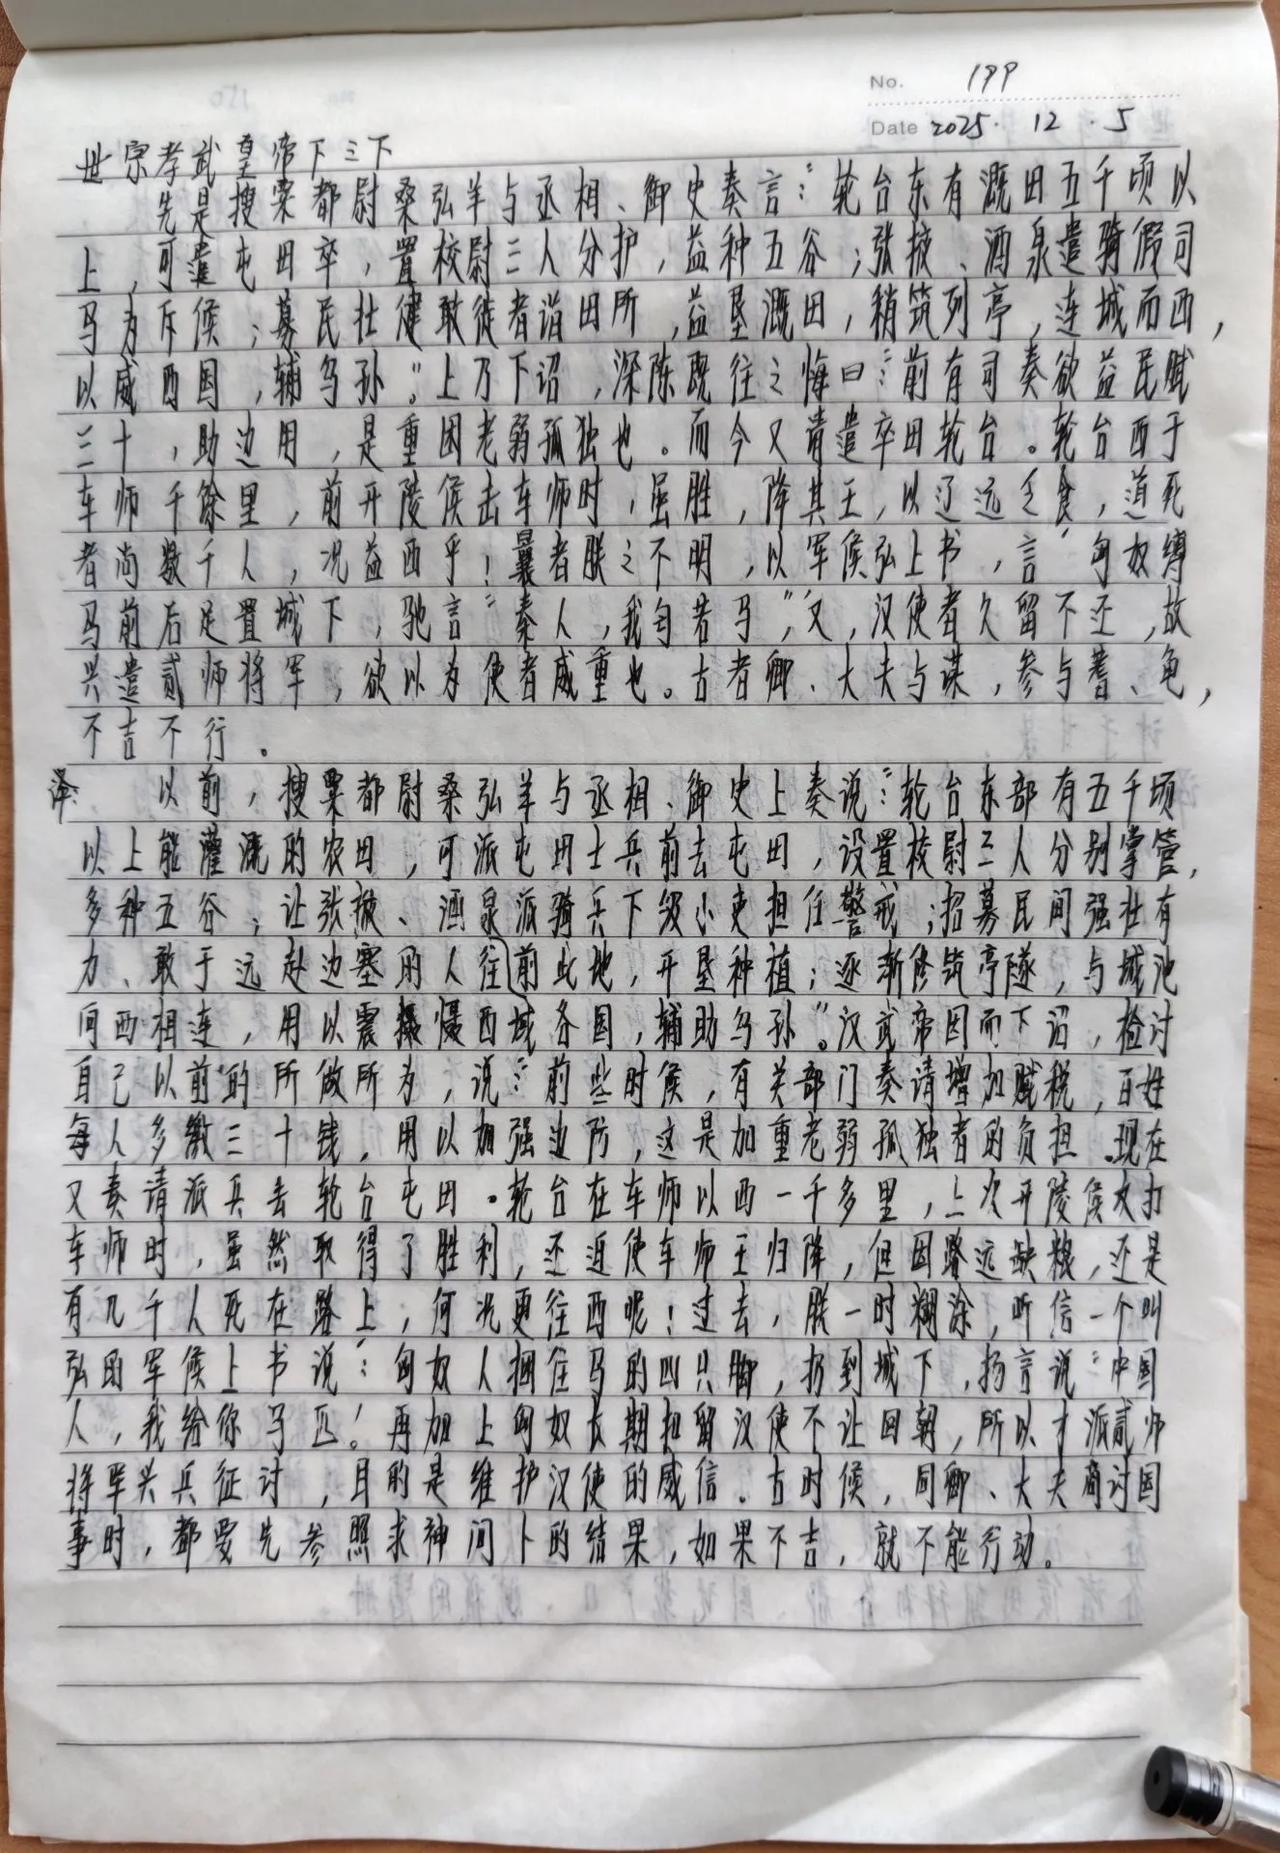 No. 199
Date 2025. 12. 5
世宗孝武皇帝下三下
先是搜粟都尉桑弘羊与丞相、御史奏言:“轮台东有溉田五千顷以
上,可遣屯田卒,置校尉三人分护,益种五谷;张掖、酒泉遣骑假司
马为斥候;募民壮健敢徒者诣田所,益垦溉田,稍筑列亭,连城而西,
以威西国,辅乌孙。”上乃下诏,深陈既往之悔曰:“前有司奏欲益民赋
三十,助边用,是重困老弱孤独也。而今又请遣卒田轮台。轮台西于
车师千馀里,前开陵侯击车师时,虽胜,降其王,以辽远乏食,道死
者尚数千人,况益西乎!曩者朕之不明,以军候弘上书,言‘匈奴缚
马前后足置城下,驰言“秦人,我匄若马”,’又,汉使者久留不还,故
兴遣贰师将军,欲以为使者威重也。古者卿、大夫与谋,参与蓍、龟,
不吉不行。
译 以前,搜粟都尉桑弘羊与丞相、御史上奏说:“轮台东部有五千顷
以上能灌溉的农田,可派屯田士兵前去屯田,设置校尉三人分别掌管,
多种五谷;让张掖、酒泉派骑兵下级小吏担任警戒;招募民间强壮有
力、敢于远赴边塞的人往前此地,开垦种植;逐渐修筑亭隧,与城池
向西相连,用以震慑西域各国,辅助乌孙。”汉武帝因而下诏,检讨
自己以前的所做所为,说:“前些时候,有关部门奏请增加赋税,百姓
每人多缴三十钱,用以加强边防,这是加重老弱孤独者的负担。现在
又奏请派兵去轮台屯田。轮台在车师以西一千多里,上次开陵侯攻打
车师时,虽然取得了胜利,还迫使车师王归降,但因路远缺粮,还是
有几千人死在路上,何况更往西呢!过去,朕一时糊涂,听信一个叫
弘的军候上书说:‘匈奴人捆住马的四只脚,扔到城下,扬言说:“中国
人,我给你马匹。’再加上匈奴长期扣留汉使不让回朝,所以才派贰师
将军兴兵征讨,目的是维护汉使的威信。古时候,同卿、大夫商讨国
事时,都要先参照求神问卜的结果,如果不吉,就不能行动。